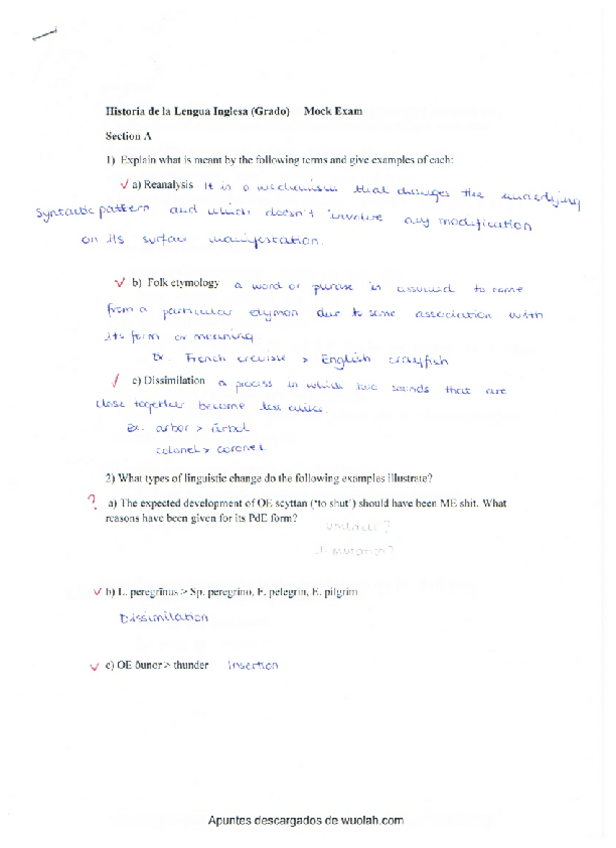 Historia de la Lengua Inglesa (Grado) Mock Exam
Section A
1) Explain what is meant by the following terms and give examples of each:
✓ a) Reanalysis It is a mechanism that changes the underlying
syntactic pattern and which doesn't involve any modification
on its surface manifestation.
✓ b) Folk etymology a word or phrase is assumed to come
from a particular etymon due to some association with
its form or meaning
Ex. French crevisse > English crayfish
✓ c) Dissimilation a process in which two sounds that are
close together become less alike.
Ex. arbor > árbol
colonel > coronel
2) What types of linguistic change do the following examples illustrate?
? a) The expected development of OE scyttan ('to shut') should have been ME shit. What
reasons have been given for its PdE form?
Umlaut ?
mutation ?
✓ b) L. peregrīnus > Sp. peregrino, F. pelegrin, E. pilgrim
Dissimilation
✓ c) OE ðunor > thunder Insertion
Apuntes descargados de wuolah.com